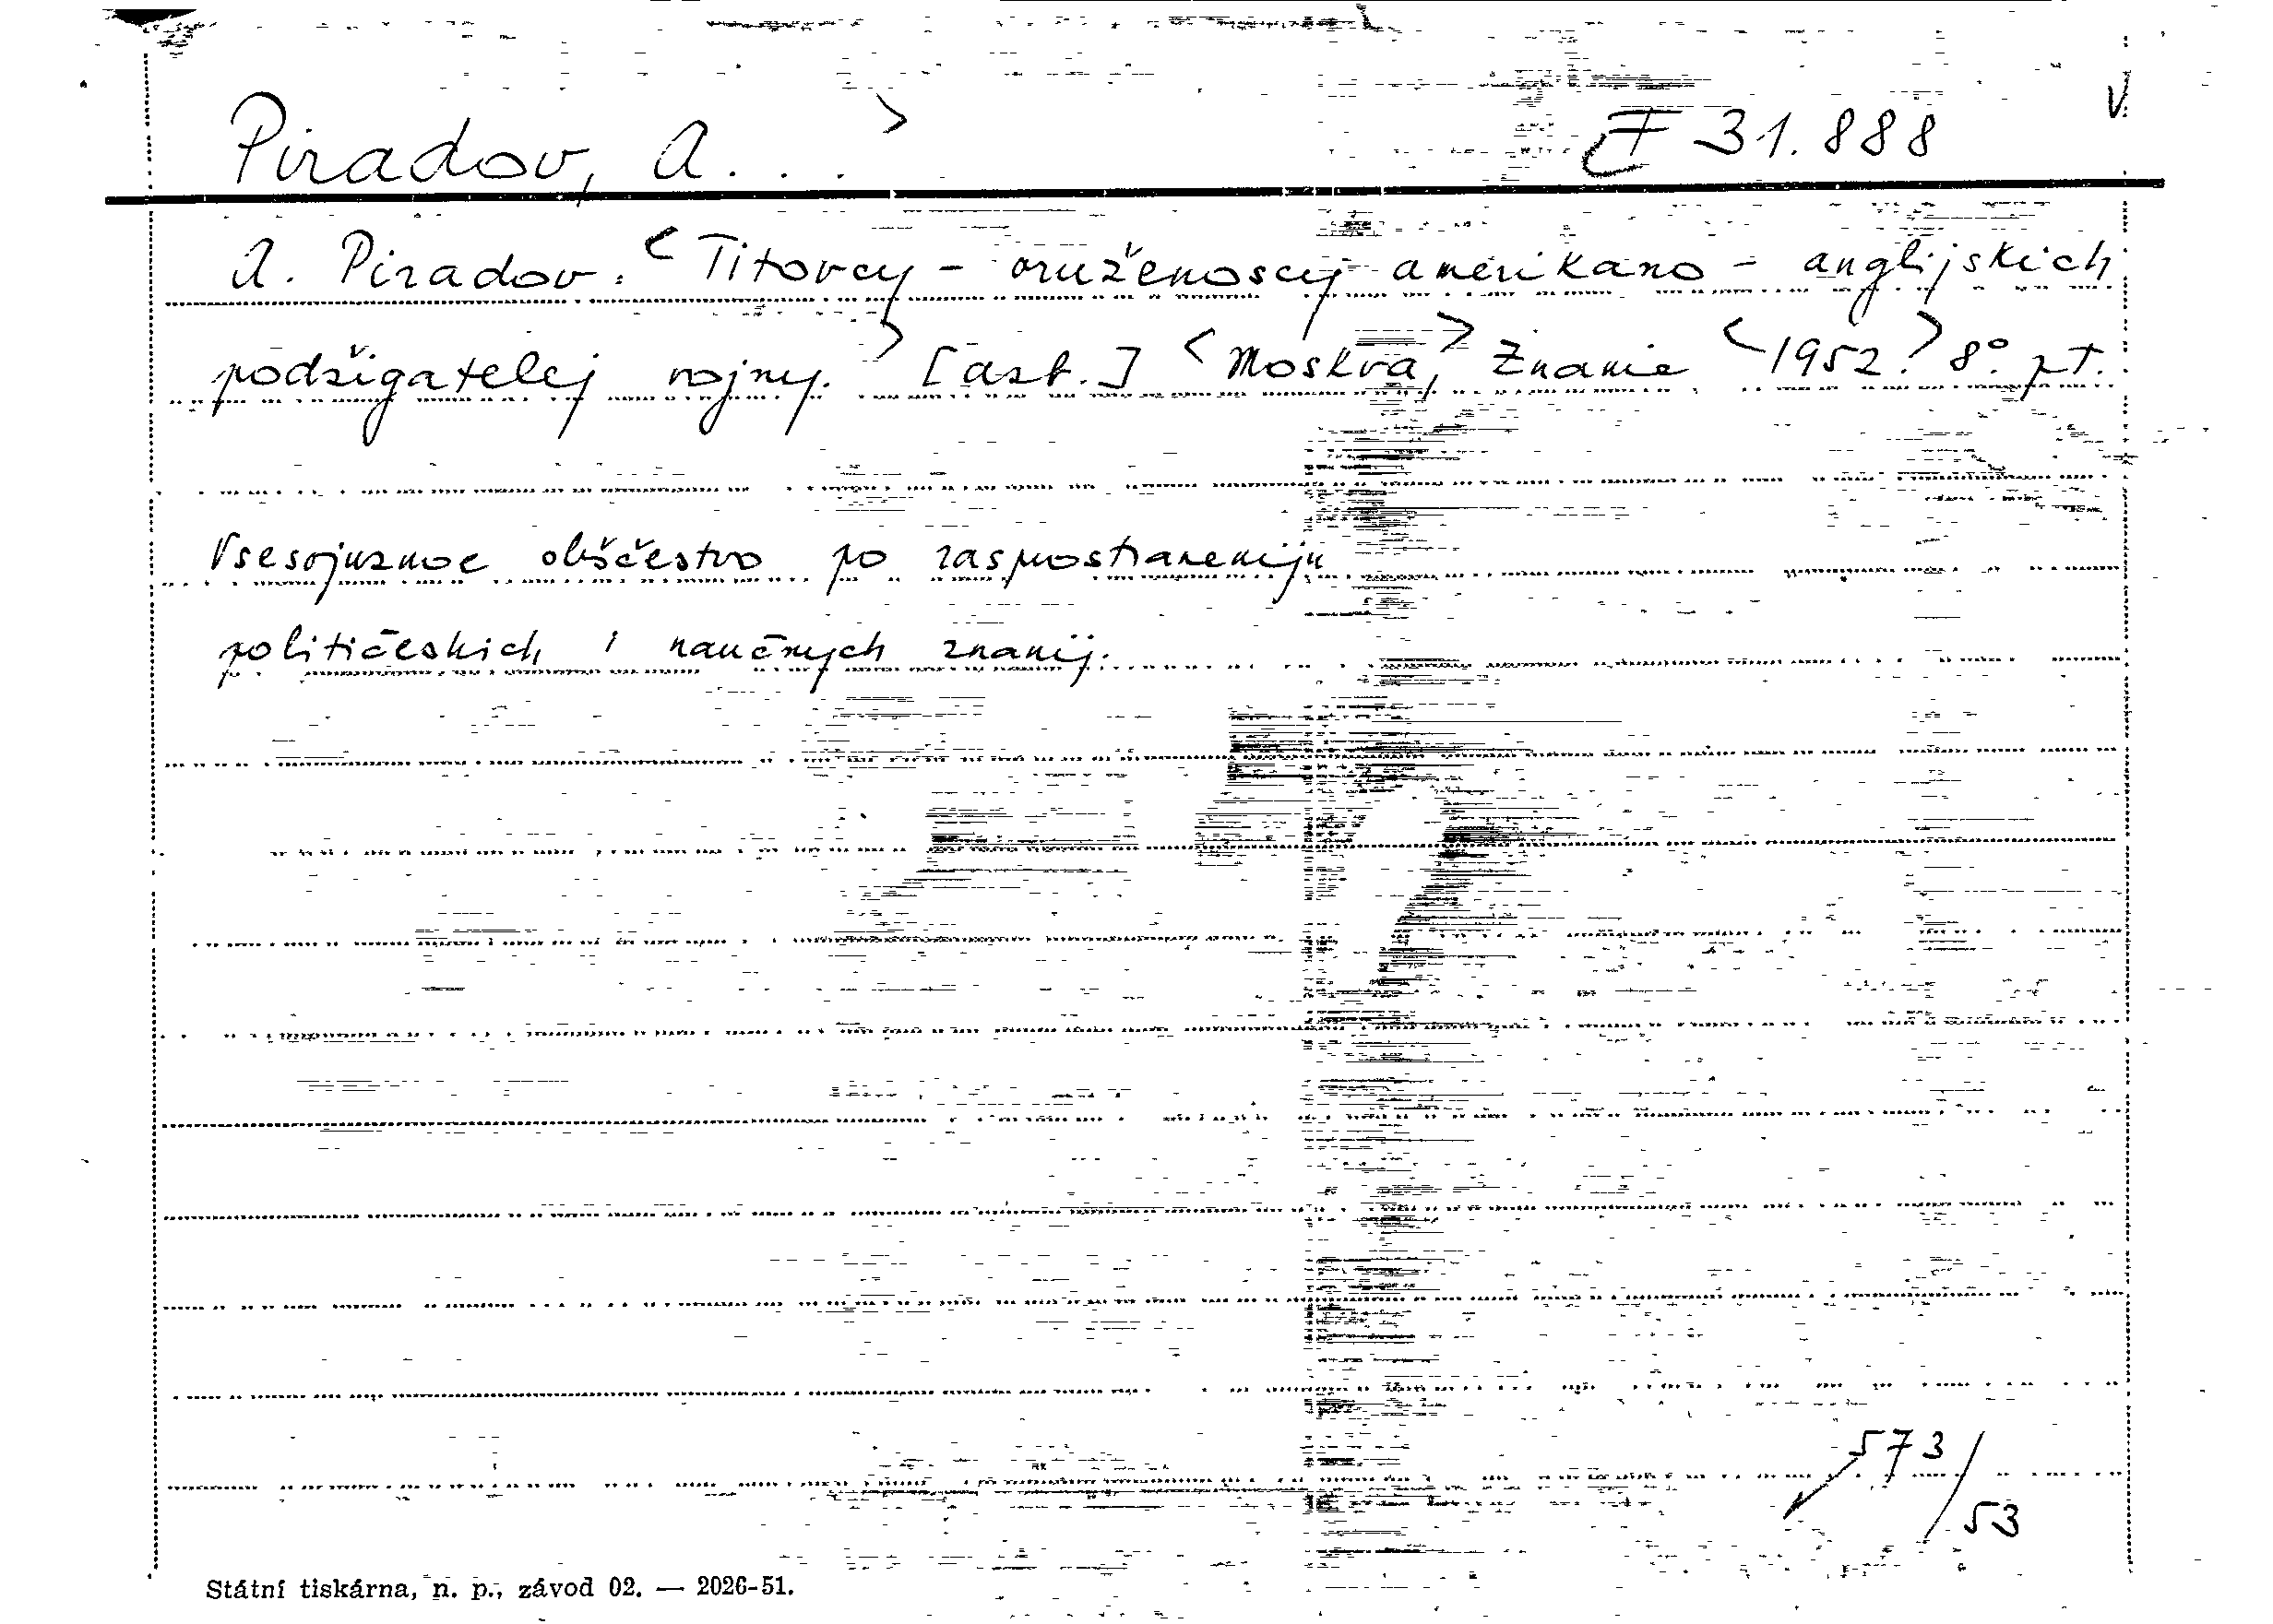 Piradov, A. . . > F 31.888 V
A. Piradov: <Titovcy - oruženoscy amerikano - anglijskich
podžigatelej vojny.> [azb.] <Moskva,> Znanie <1952.> 8°. pt.
Vsesojuznoe obščestvo po rasprostraneniju
političeskich i naučnych znanij.
573/53
Státní tiskárna, n. p., závod 02. — 2026-51.